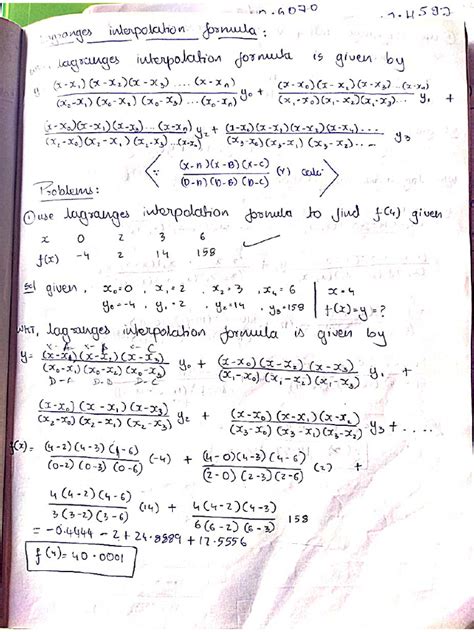 lagranges interpolation formula :
lagranges interpolation formula is given by
y (x-x₁)(x-x₂)(x-x₃) .... (x-xₙ) / (x₀-x₁)(x₀-x₂)(x₀-x₃) ...(x₀-xₙ) y₀ + (x-x₀)(x-x₂)(x-x₃) ...(x-xₙ) / (x₁-x₀)(x₁-x₂)(x₁-x₃)... y₁ +
(x-x₀)(x-x₁)(x-x₃) ...(x-xₙ) / (x₂-x₀)(x₂-x₁)(x₂-x₃) ...(x-xₙ) y₂ + (x-x₀)(x-x₁)(x-x₂)(x-x₄)... / (x₃-x₀)(x₃-x₁)(x₃-x₂)... y₃
(x-A)(x-B)(x-C) / (D-A)(D-B)(D-C) (Y) calci
Problems :
① use lagranges interpolation formula to find f(4) given
x 0 2 3 6
f(x) -4 2 14 158
sol given, x₀=0 , x₁=2 , x₂=3 , x₃=6 | x=4
y₀=-4 y₁=2 y₂=14 y₃=158 | f(x)=y=?
WKT, lagranges interpolation formula is given by
x-A x-B x-C
y= (x-x₁)(x-x₂)(x-x₃) / (x₀-x₁)(x₀-x₂)(x₀-x₃) y₀ + (x-x₀)(x-x₂)(x-x₃) / (x₁-x₀)(x₁-x₂)(x₁-x₃) y₁ +
D-A D-B D-C
(x-x₀)(x-x₁)(x-x₃) / (x₂-x₀)(x₂-x₁)(x₂-x₃) y₂ + (x-x₀)(x-x₁)(x-x₂) / (x₃-x₀)(x₃-x₁)(x₃-x₂) y₃ + ....
f(x)= (4-2)(4-3)(4-6) / (0-2)(0-3)(0-6) (-4) + (4-0)(4-3)(4-6) / (2-0)(2-3)(2-6) (2) +
4(4-2)(4-6) / 3(3-2)(3-6) (14) + 4(4-2)(4-3) / 6(6-2)(6-3) 158
= -0.4444 - 2 + 24.8889 + 17.5556
f(4)= 40.0001